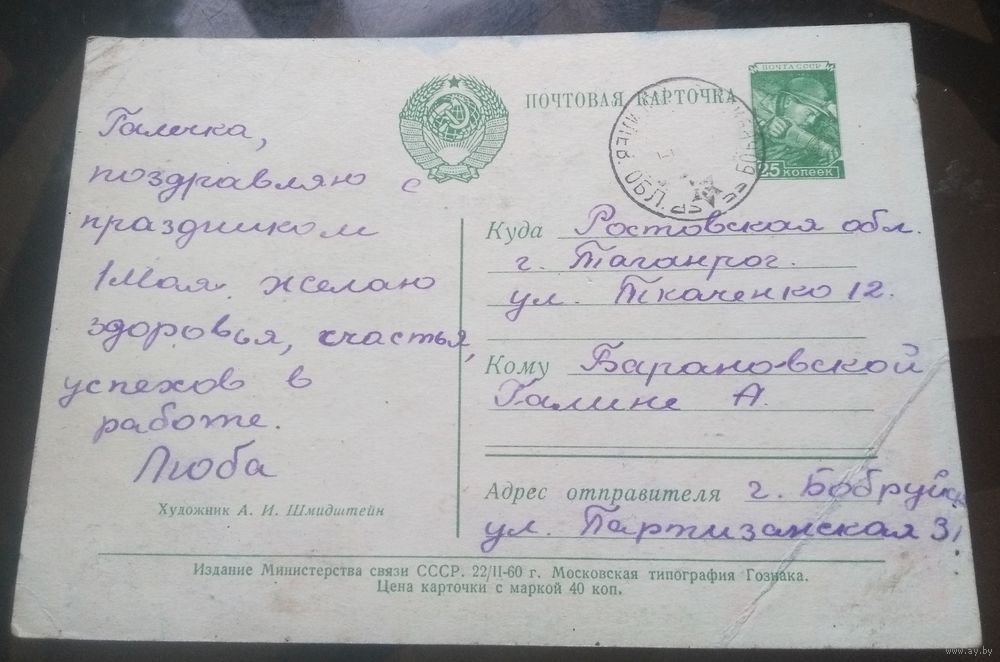 Галечка,
поздравляю с
праздником
1 Мая. желаю
здоровья, счастья,
успехов в
работе.
Люба
Художник А. И. Шмидштейн
ПОЧТОВАЯ КАРТОЧКА
ПОЧТА СССР
25 КОПЕЕК
ОБЛ.
Куда Ростовская обл.
г. Таганрог.
ул. Ткаченко 12.
Кому Барановской
Галине А.
Адрес отправителя г. Бобруйск
ул. Партизанская 31
Издание Министерства связи СССР. 22/II-60 г. Московская типография Гознака.
Цена карточки с маркой 40 коп.
www.ay.by